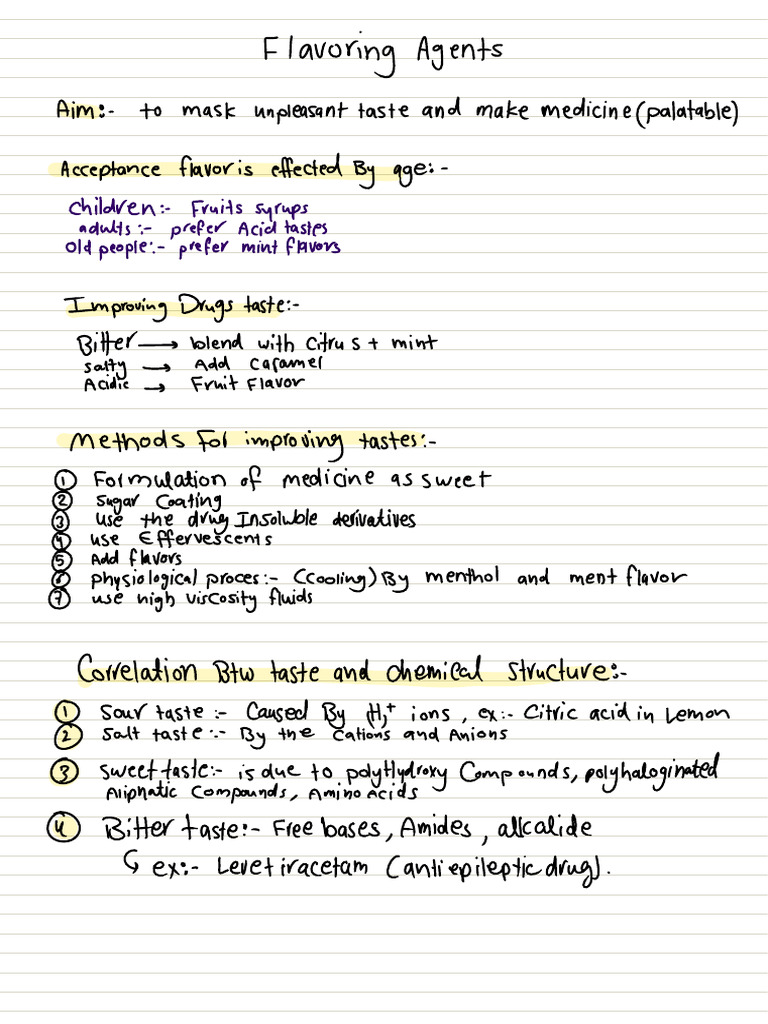 Flavoring Agents
Aim:- to mask unpleasant taste and make medicine (palatable)
Acceptance flavor is effected By age:-
Children:- Fruits syrups
adults:- prefer Acid tastes
old people:- prefer mint flavors
Improving Drugs taste:-
Bitter → blend with citrus + mint
Salty → Add Caramel
Acidic → Fruit Flavor
Methods For improving tastes:-
① Formulation of medicine as sweet
② Sugar Coating
③ use the drug Insoluble derivatives
④ use Effervescents
⑤ Add flavors
⑥ physiological proces:- (cooling) By menthol and ment flavor
⑦ use high viscosity fluids
Correlation Btw taste and chemical structure:-
① Sour taste:- Caused By H⁺ ions, ex:- Citric acid in Lemon
② Salt taste:- By the Cations and Anions
③ Sweet taste:- is due to polyHydroxy Compounds, polyhaloginated
Aliphatic Compounds, Amino Acids
④ Bitter taste:- Free bases, Amides, alkcalide
↳ ex:- Levetiracetam (antiepileptic drug).